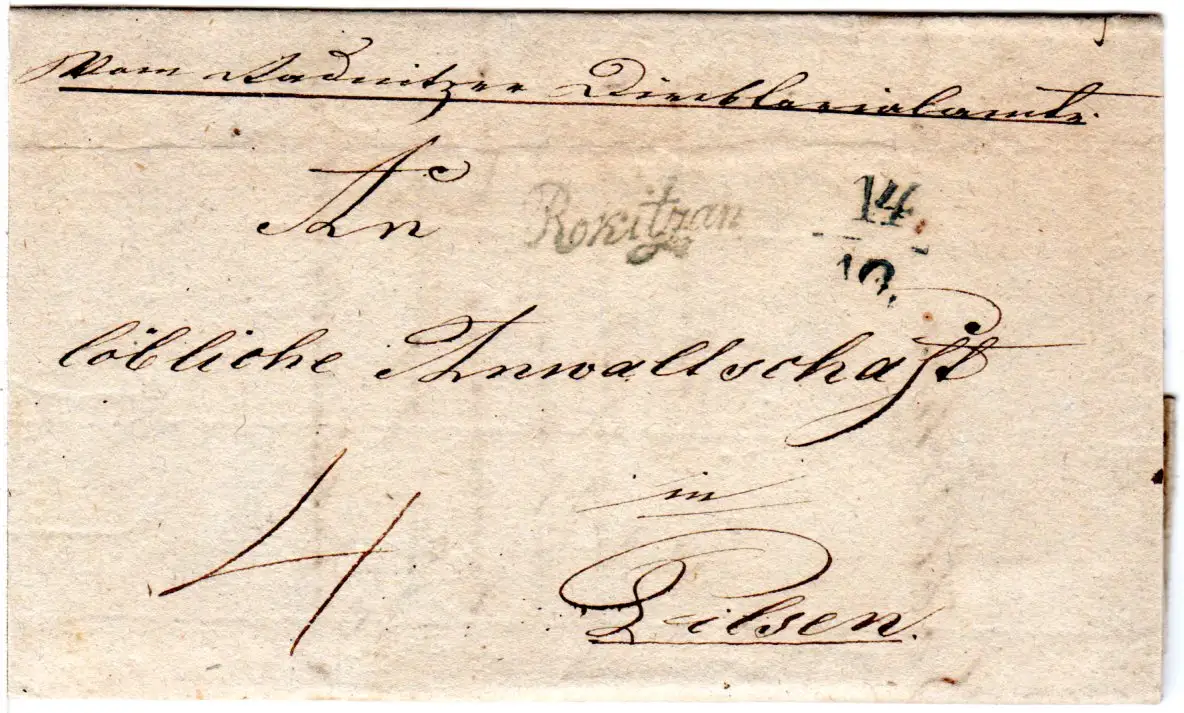 Vom Radnitzer Direktorialamte.
An
Rokitzan
14
10.
löbliche Anwaltschaft
4
in
Pilsen.